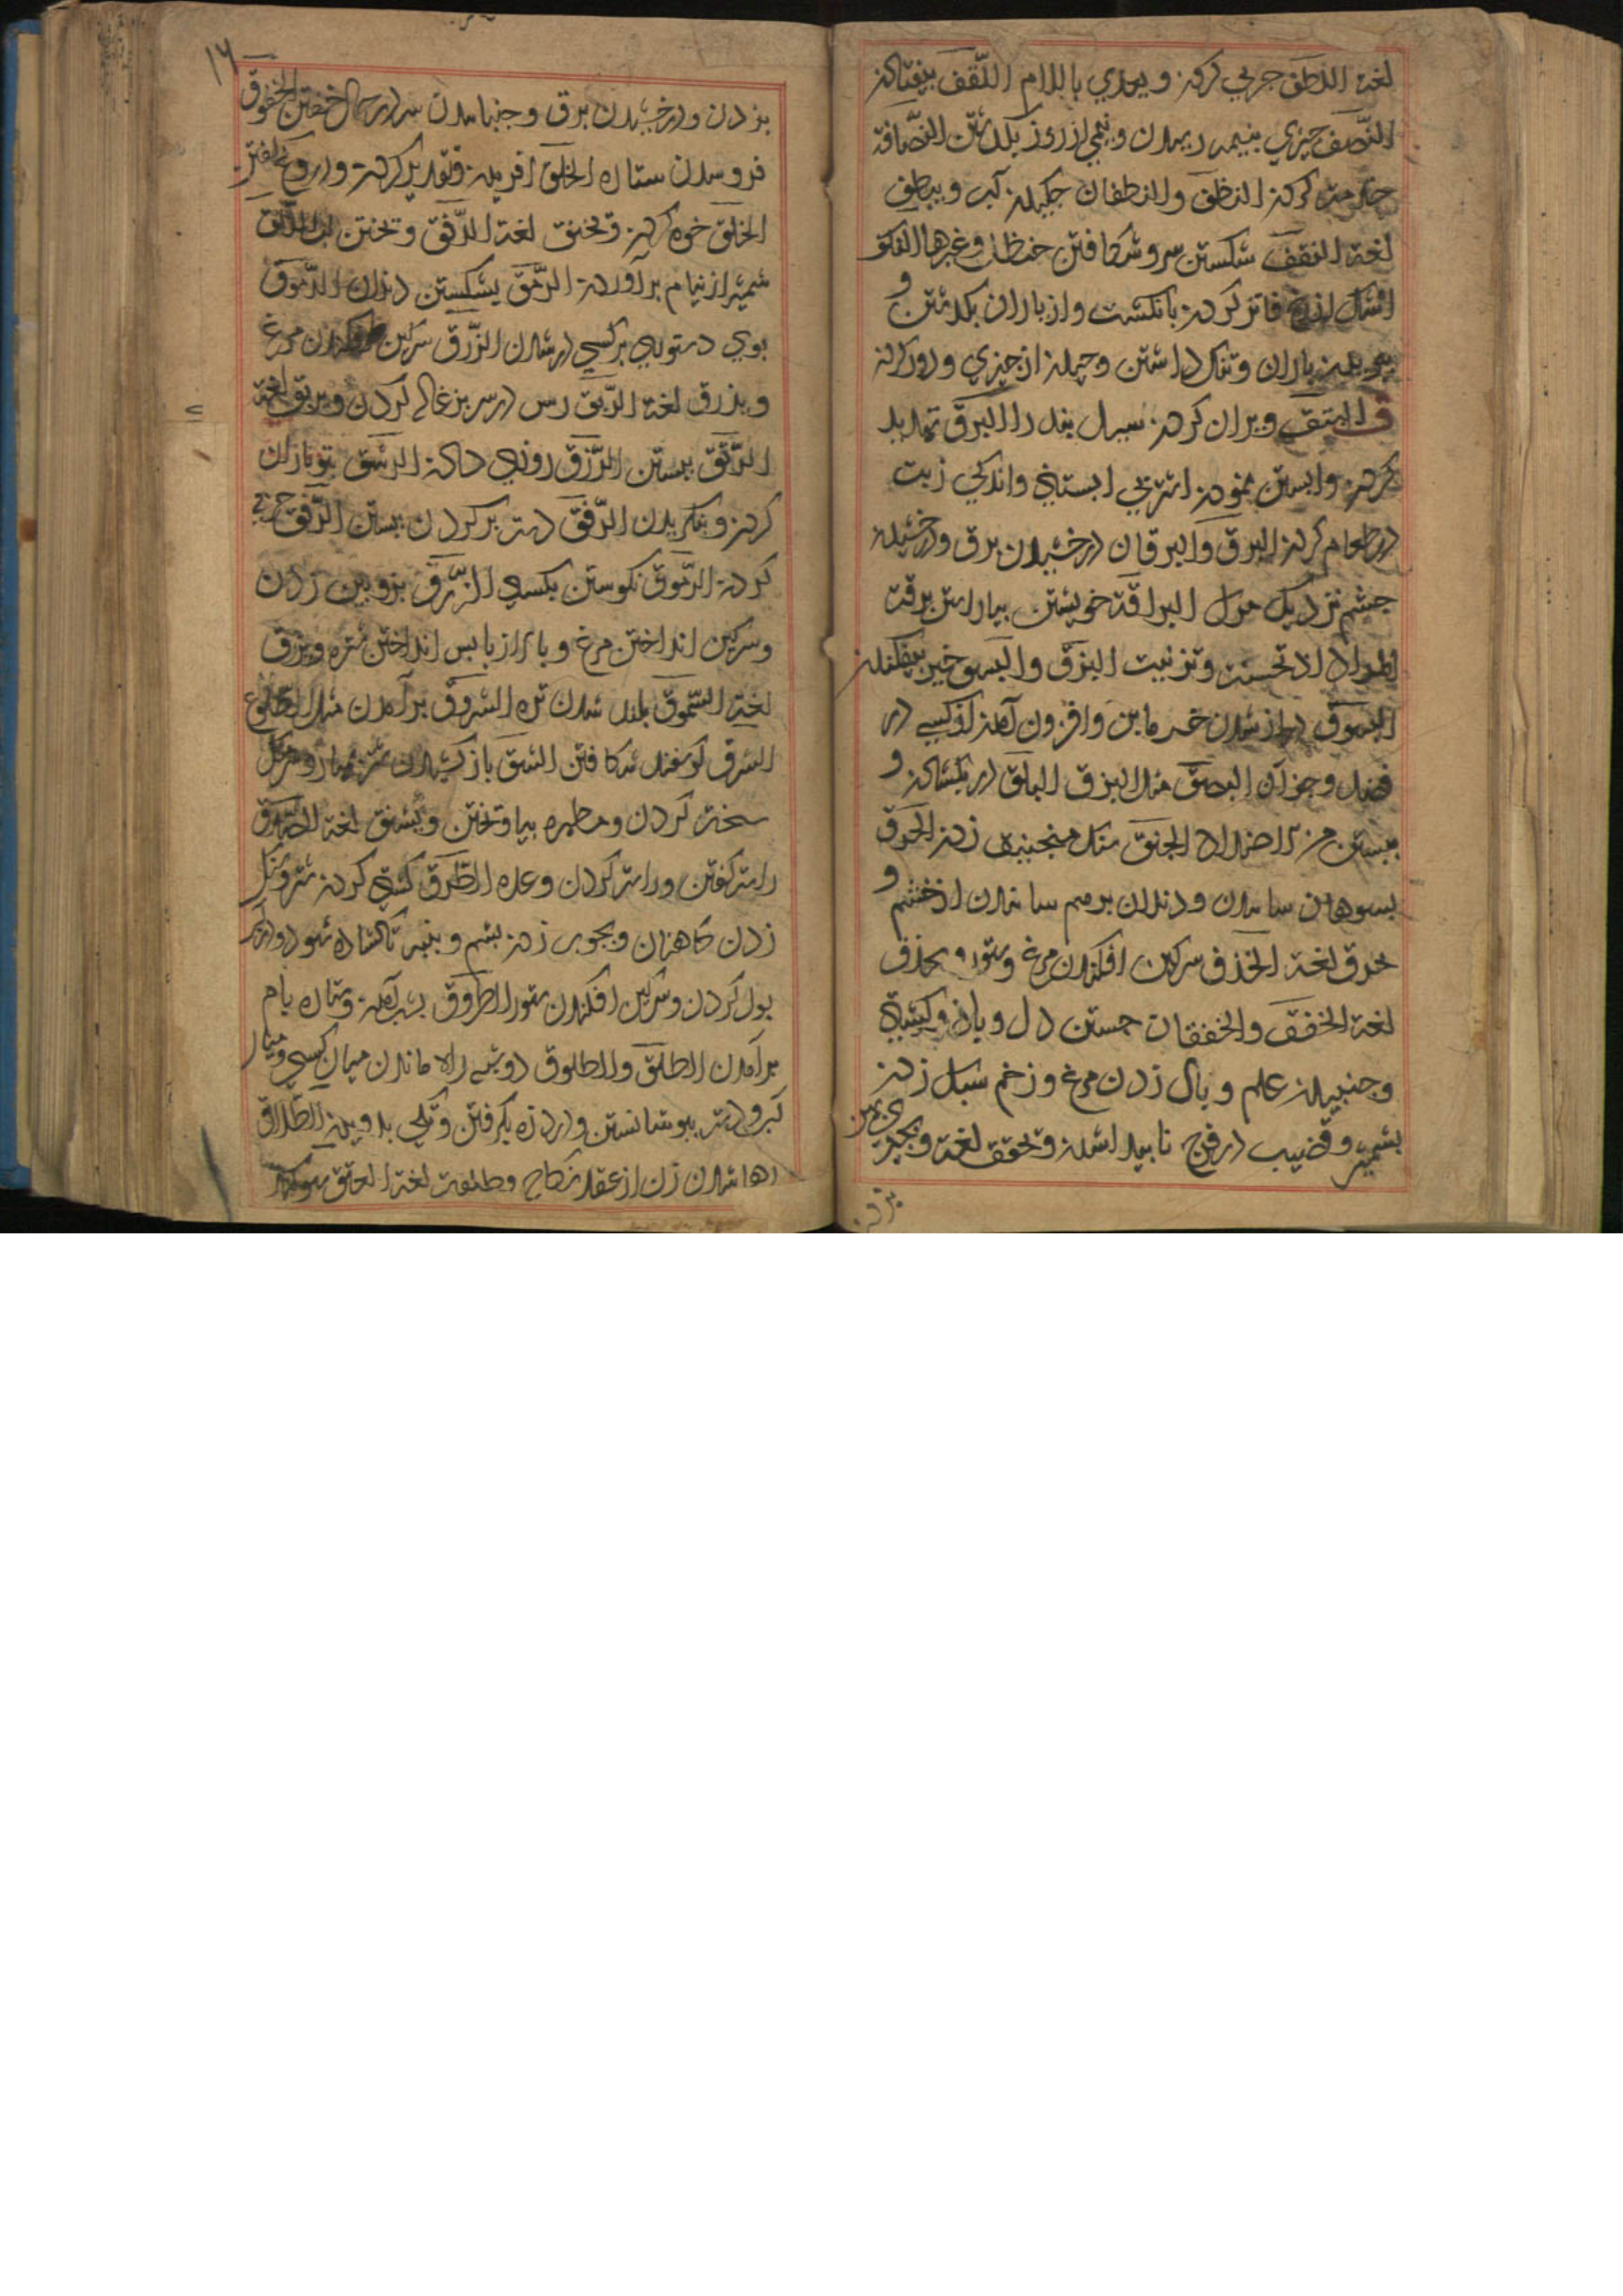 لغة اللطف چربی کردن و یعدی باللام اللقف بیفتادن
النصف چیزی بنیمه رسیدن و نیمی از روز بگذشتن النصافة
خدمت کردن النطف والنطفان چکیدن آب و ینطف
لغة النقف شکستن سر و شکافتن حنظل و غیرها النکف
اشک از رخ فاتر کردن بانگشت و از باران بگذشتن و
بریدن باران و ننگ داشتن و جمله از چیزی و دور کردن
ق البثق ویران کردن سیل بند را البرق تهدید
کردن و آبستن نمودن اشتر بی آبستنی و اندکی زیت
در طعام کردن البرق والبرقان درخشیدن برق و درخشیدن
چشم نزدیک مرگ البراقة خویشتن بیاراستن برقت
المراة اذا تحسنت و تزینت البزق والبسق خیو بیفکندن
البسوق دراز شدن خرمابن و افزون آمدن از کسی در
فضل و جز آن البصق مثل البزق البلق در بگشادن و
ببستن من الاضداد الجنق سنگ منجنیق زدن الحرق
بسوهان ساییدن و دندان بر هم ساییدن از خشم و
یحرق لغة الخذق سرگین افکندن مرغ و ستور و یخذق
لغة الخفق والخفقان جستن دل و باد و کشتی
و جنبیدن علم و بال زدن مرغ و زخم سبک زدن
بشمشیر و قضیب در فرج ناپیدا شدن و یخفق لغة و بچیزی پهن
بزدن
۱۶
بزدن و درخشیدن برق و جنبانیدن سر در حال خفتن الخفوق
فرو شدن ستاره الخلق آفریدن و تقدیر کردن و دروغ گفتن
الخنق خوه کردن و یخنق لغة الدفق و ریختن آب الدلق
شمشیر از نیام بر آوردن الدمق بشکستن دندان الدموق
بوی دستوری بر کسی در شدن الذرق سرگین افکندن مرغ
و یذرق لغة الربق رسن در سر بزغاله کردن و یربق لغة
الرتق ببستن الرزق روزی دادن الرشق تیرباران
کردن و بنگریدن الرفق دست بر کردن ببستن الرفق چربی
کردن الرموق نگریستن بکسی الزرق بزوبین زدن
و سرگین انداختن مرغ و بار از پاپس انداختن شتر و یزرق
لغة السموق بلند شدن تره الشروق بر آمدن مثل الطلوع
الشرق گوسفند شکافتن الشنق باز کشیدن شتر بمهار و سر مشک
سخت کردن و مطهره بیاویختن و یشنق لغة الصدق
راست گفتن و راست کردن وعده الطرق گشنی کردن شتر و سنگ
زدن کاهنان و بچوب زدن پشم و پنبه تا گشاده شود و در آب
بول کردن و سرگین افکندن ستور الطروق بشب آمدن و ستاره بام
بر آمدن الطلق والطلوق دوشیدن رها ماندن میان کسی و میان
کیر و دست بپوشانستن و درد زه بگرفتن و تگی بدویدن الطلاق
رها شدن زن از عقد نکاح و طلقت لغة العتق سوگند